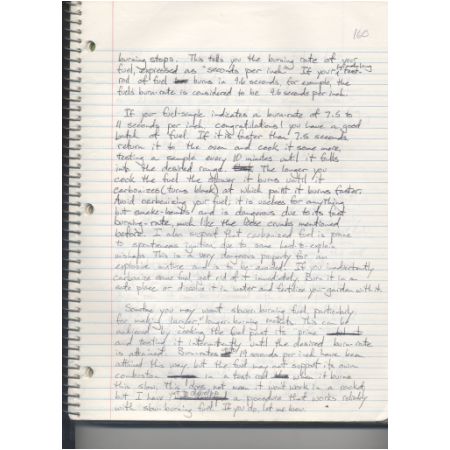 160
burning stops. This tells you the burning rate of your
fuel, expressed as "seconds per inch". If your
rod of fuel burns in 9.6 seconds, for example, the
fuel's burn-rate is considered to be 9.6 seconds per inch.
If your fuel-sample indicates a burn-rate of 7.5 to
11 seconds per inch congratulations! you have a good
batch of fuel. If it is faster than 7.5 seconds
return it to the oven and cook it some more,
testing a sample every 10 minutes until it falls
into the desired range. The longer you
cook the fuel the slower it burns until it
carbonizes (turns black) at which point it burns faster.
Avoid carbonizing your fuel, it is useless for anything
but smoke-bombs and is dangerous due to its fast
burning-rate, much like the loose crumbs mentioned
before. I also suspect that carbonized fuel is prone
to spontaneous ignition due to some hard-to-explain
mishaps. This is a very dangerous property for an
explosive mixture and is to be avoided. If you inadvertently
carbonize some fuel get rid of it immediately. Burn it in a
safe place or dissolve it in water and fertilize your garden with it.
Sometime you may want slower burning fuel, particularly
for making larger, longer-burning motors. This can be
achieved by cooking the fuel past its prime
and testing it intermittently until the desired burn-rate
is attained. Burn-rates 14 seconds per inch have been
attained this way but the fuel may not support its own
combustion in a test rod when it burns
this slow. This does not mean it won't work in a rocket,
but I have a procedure that works reliably
with slow-burning fuel. If you do, let me know.